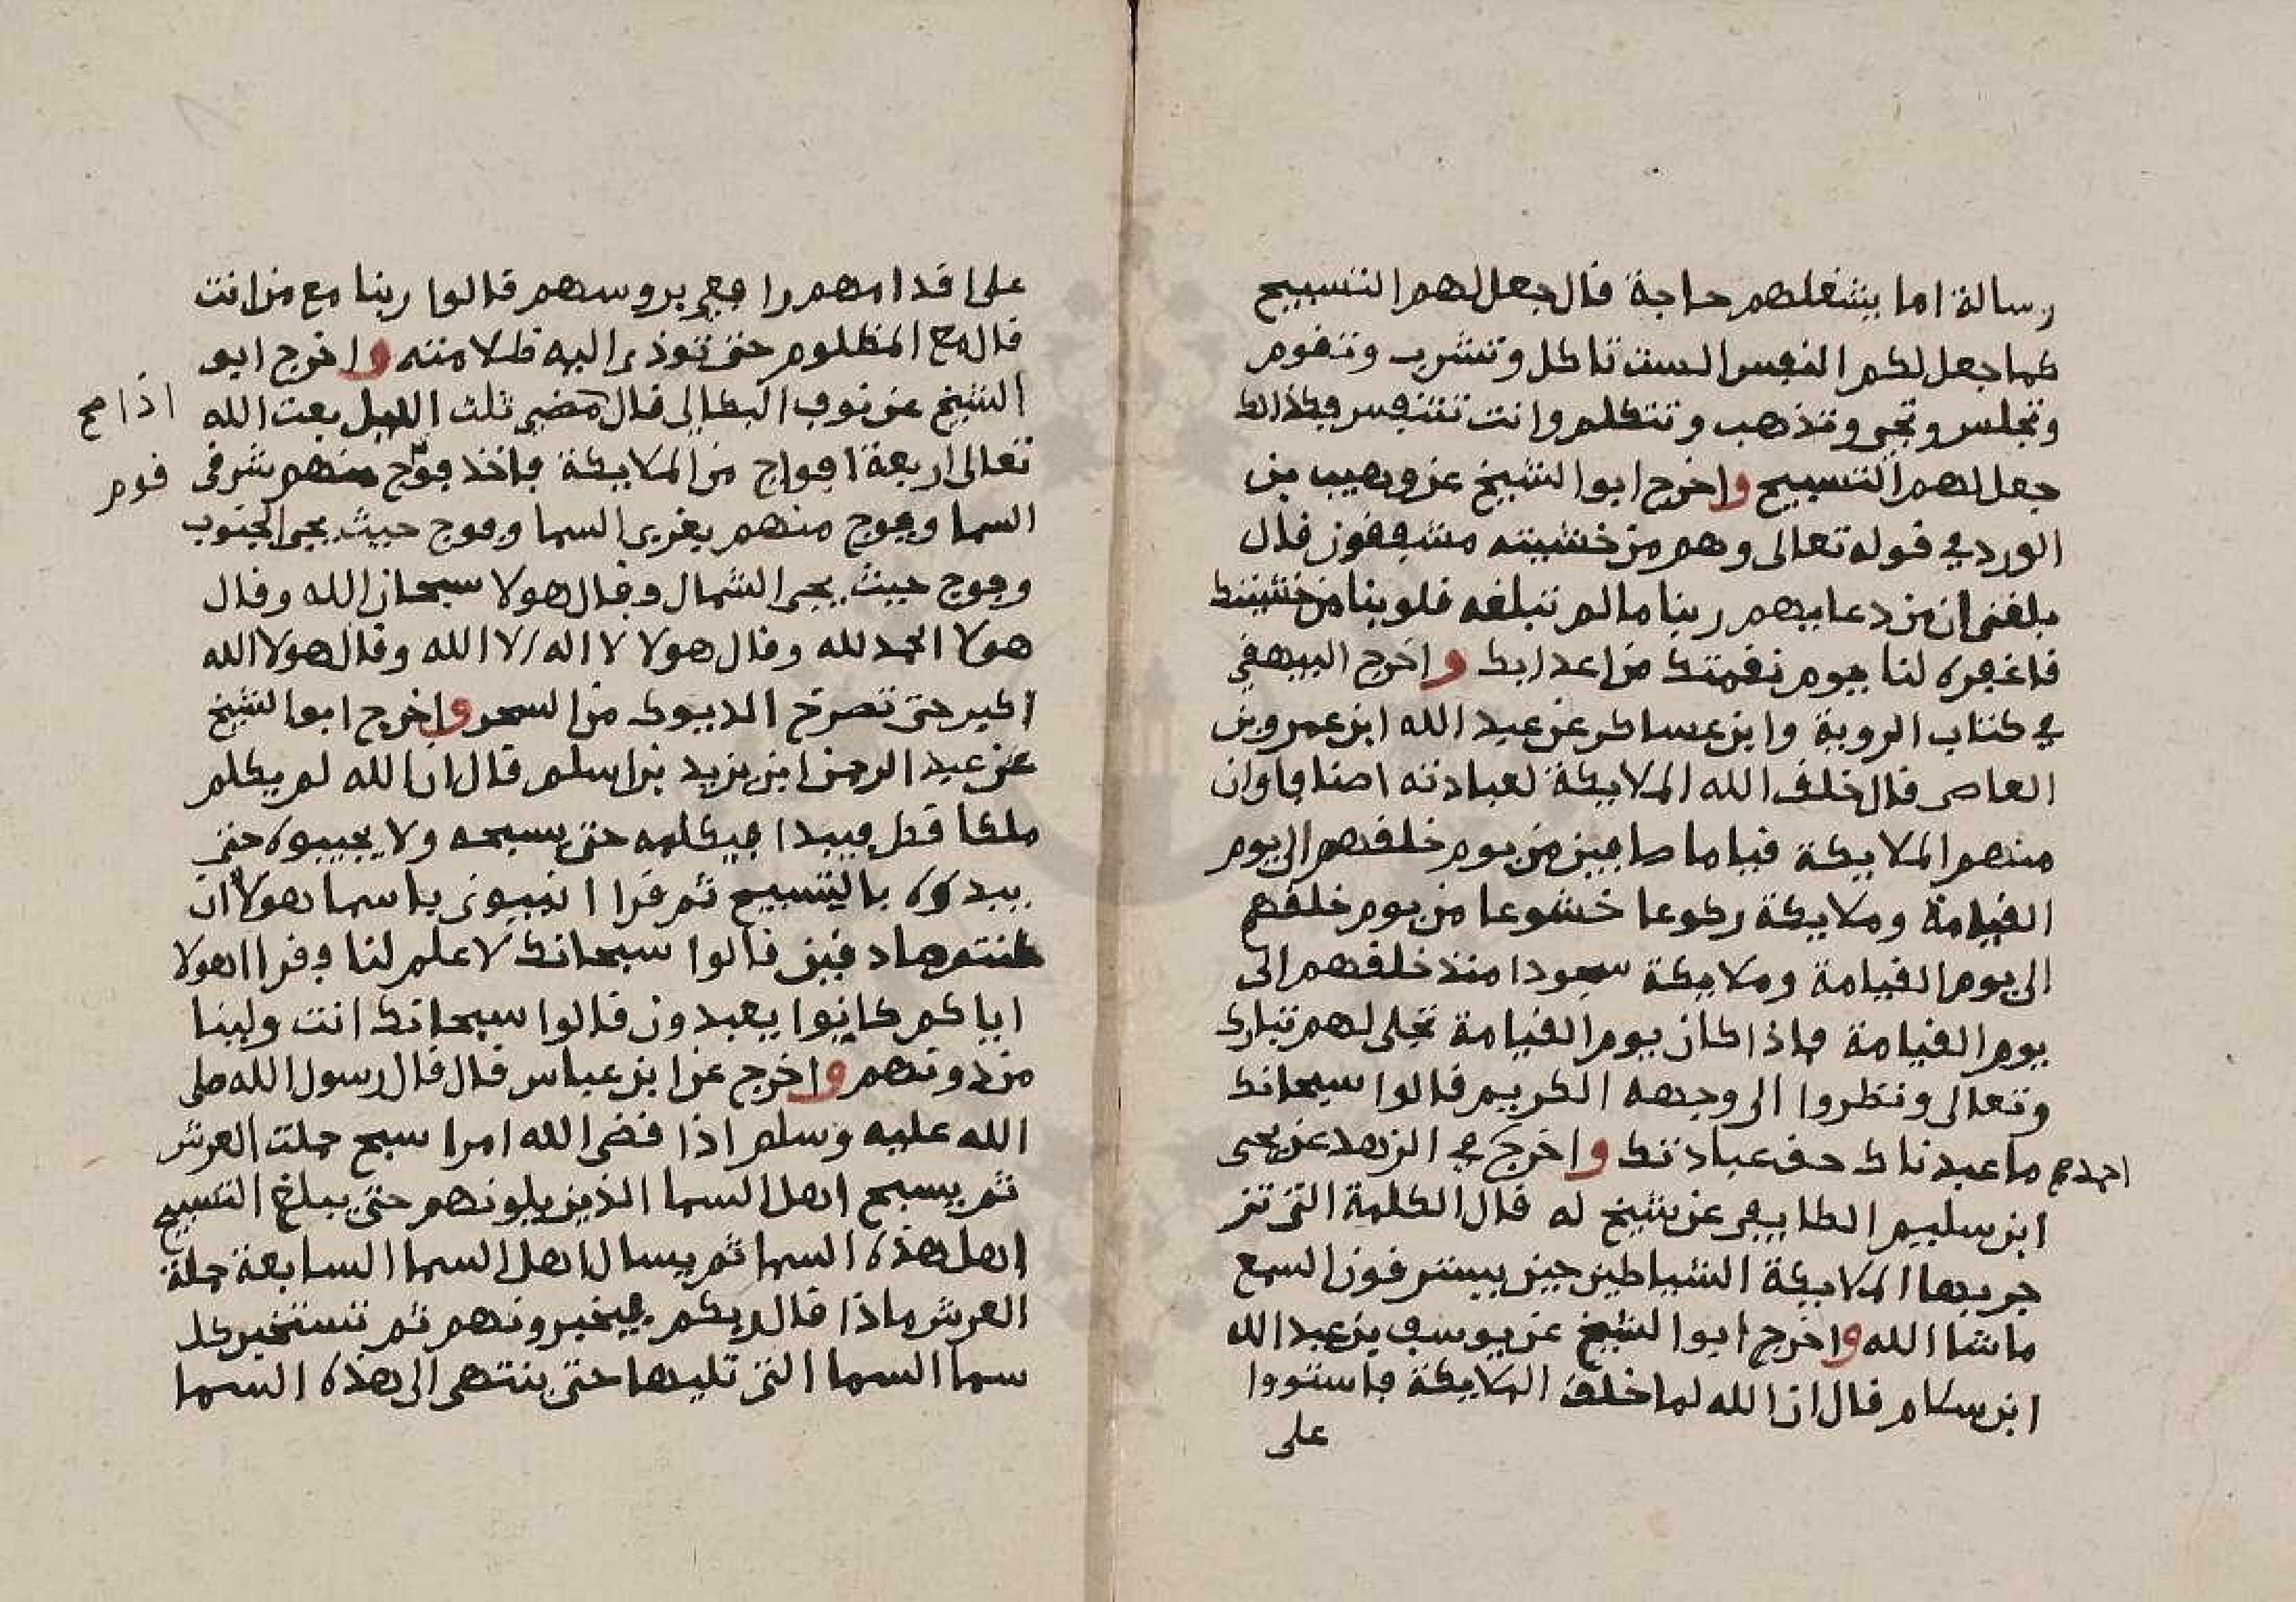 رسالة اما يشغلهم حاجة قال جعل لهم التسبيح
كما جعل لكم النفس الست تاكل وتشرب وتقوم
وتجلس وتجي وتذهب وتتكلم وانت تتنفس فكذالك
جعل لهم التسبيح واخرج ابوا الشيخ عن وهيب بن
الورد في قوله تعالى وهم من خشيته مشفقون قال
بلغني ان من دعايهم ربنا ما لم تبلغه قلوبنا من خشيتك
فاغفره لنا يوم نقمتك من اعدايك واخرج البيهقي
في كتاب الروية وابن عساكر عن عبد الله ابن عمرو بن
العاص قال خلق الله الملايكة لعبادته اصنافا وان
منهم الملايكة قياما صافين من يوم خلقهم الى يوم
القيامة وملايكة ركوعا خشوعا من يوم خلقهم
الى يوم القيامة وملايكة سجودا منذ خلقهم الى
يوم القيامة فاذا كان يوم القيامة تجلى لهم تبارك
وتعالى ونظروا الى وجهه الكريم قالوا سبحانك
ما عبدناك حق عبادتك واخرج في الزهد عن يحى
احمد صح
ابن سليم الطايفي عن شيخ له قال الكلمة التي تز
جر بها الملايكة الشياطين حين يسترقون السمع
ماشا الله واخرج ابوا الشيخ عن يوسف بن عبد الله
ابن سلام قال ان الله لما خلق الملايكة فاستووا
على
على اقدامهم رافعي بروسهم قالوا ربنا مع من انت
قال مع المظلوم حتى توذى اليه ظلامته واخرج ابو
الشيخ عن نوف البكالي قال مضى ثلث الليل بعث الله
اذا صح
تعالى اربعة افواج من الملايكة فاخذ فوج منهم شرقي
فوم
السما وفوج منهم بغربي السما وفوج حيث يجي الجنوب
وفوج حيث يجي الشمال وقال هولا سبحان الله وقال
هولا الحمد لله وقال هولا لا اله الا الله وقال هولا الله
اكبر حتى تصرخ الديوك من السحر واخرج ابوا الشيخ
عن عبد الرحمن ابن يزيد بن اسلم قال ان الله لم يكلم
ملكا قط فيبدا فيكلمه حتى يسبحه ولا يجيبوه حتى
يبدوه بالتسبيح ثم قرا انبيوني باسما هولا ان
كنتم صادقين قالوا سبحانك لا علم لنا وقرا اهولا
اياكم كانوا يعبدون قالوا سبحانك انت ولينا
من دونهم واخرج عن ابن عباس قال قال رسول الله صلى
الله عليه وسلم اذا قضى الله امرا سبح حملت العرش
ثم يسبح اهل السما الذين يلونهم حتى يبلغ التسبيح
اهل هذه السما ثم يسال اهل السما السابعة حملة
العرش ماذا قال ربكم فيخبرونهم ثم تستخبر كل
سما السما التي تليها حتى ينتهى الى هذه السما